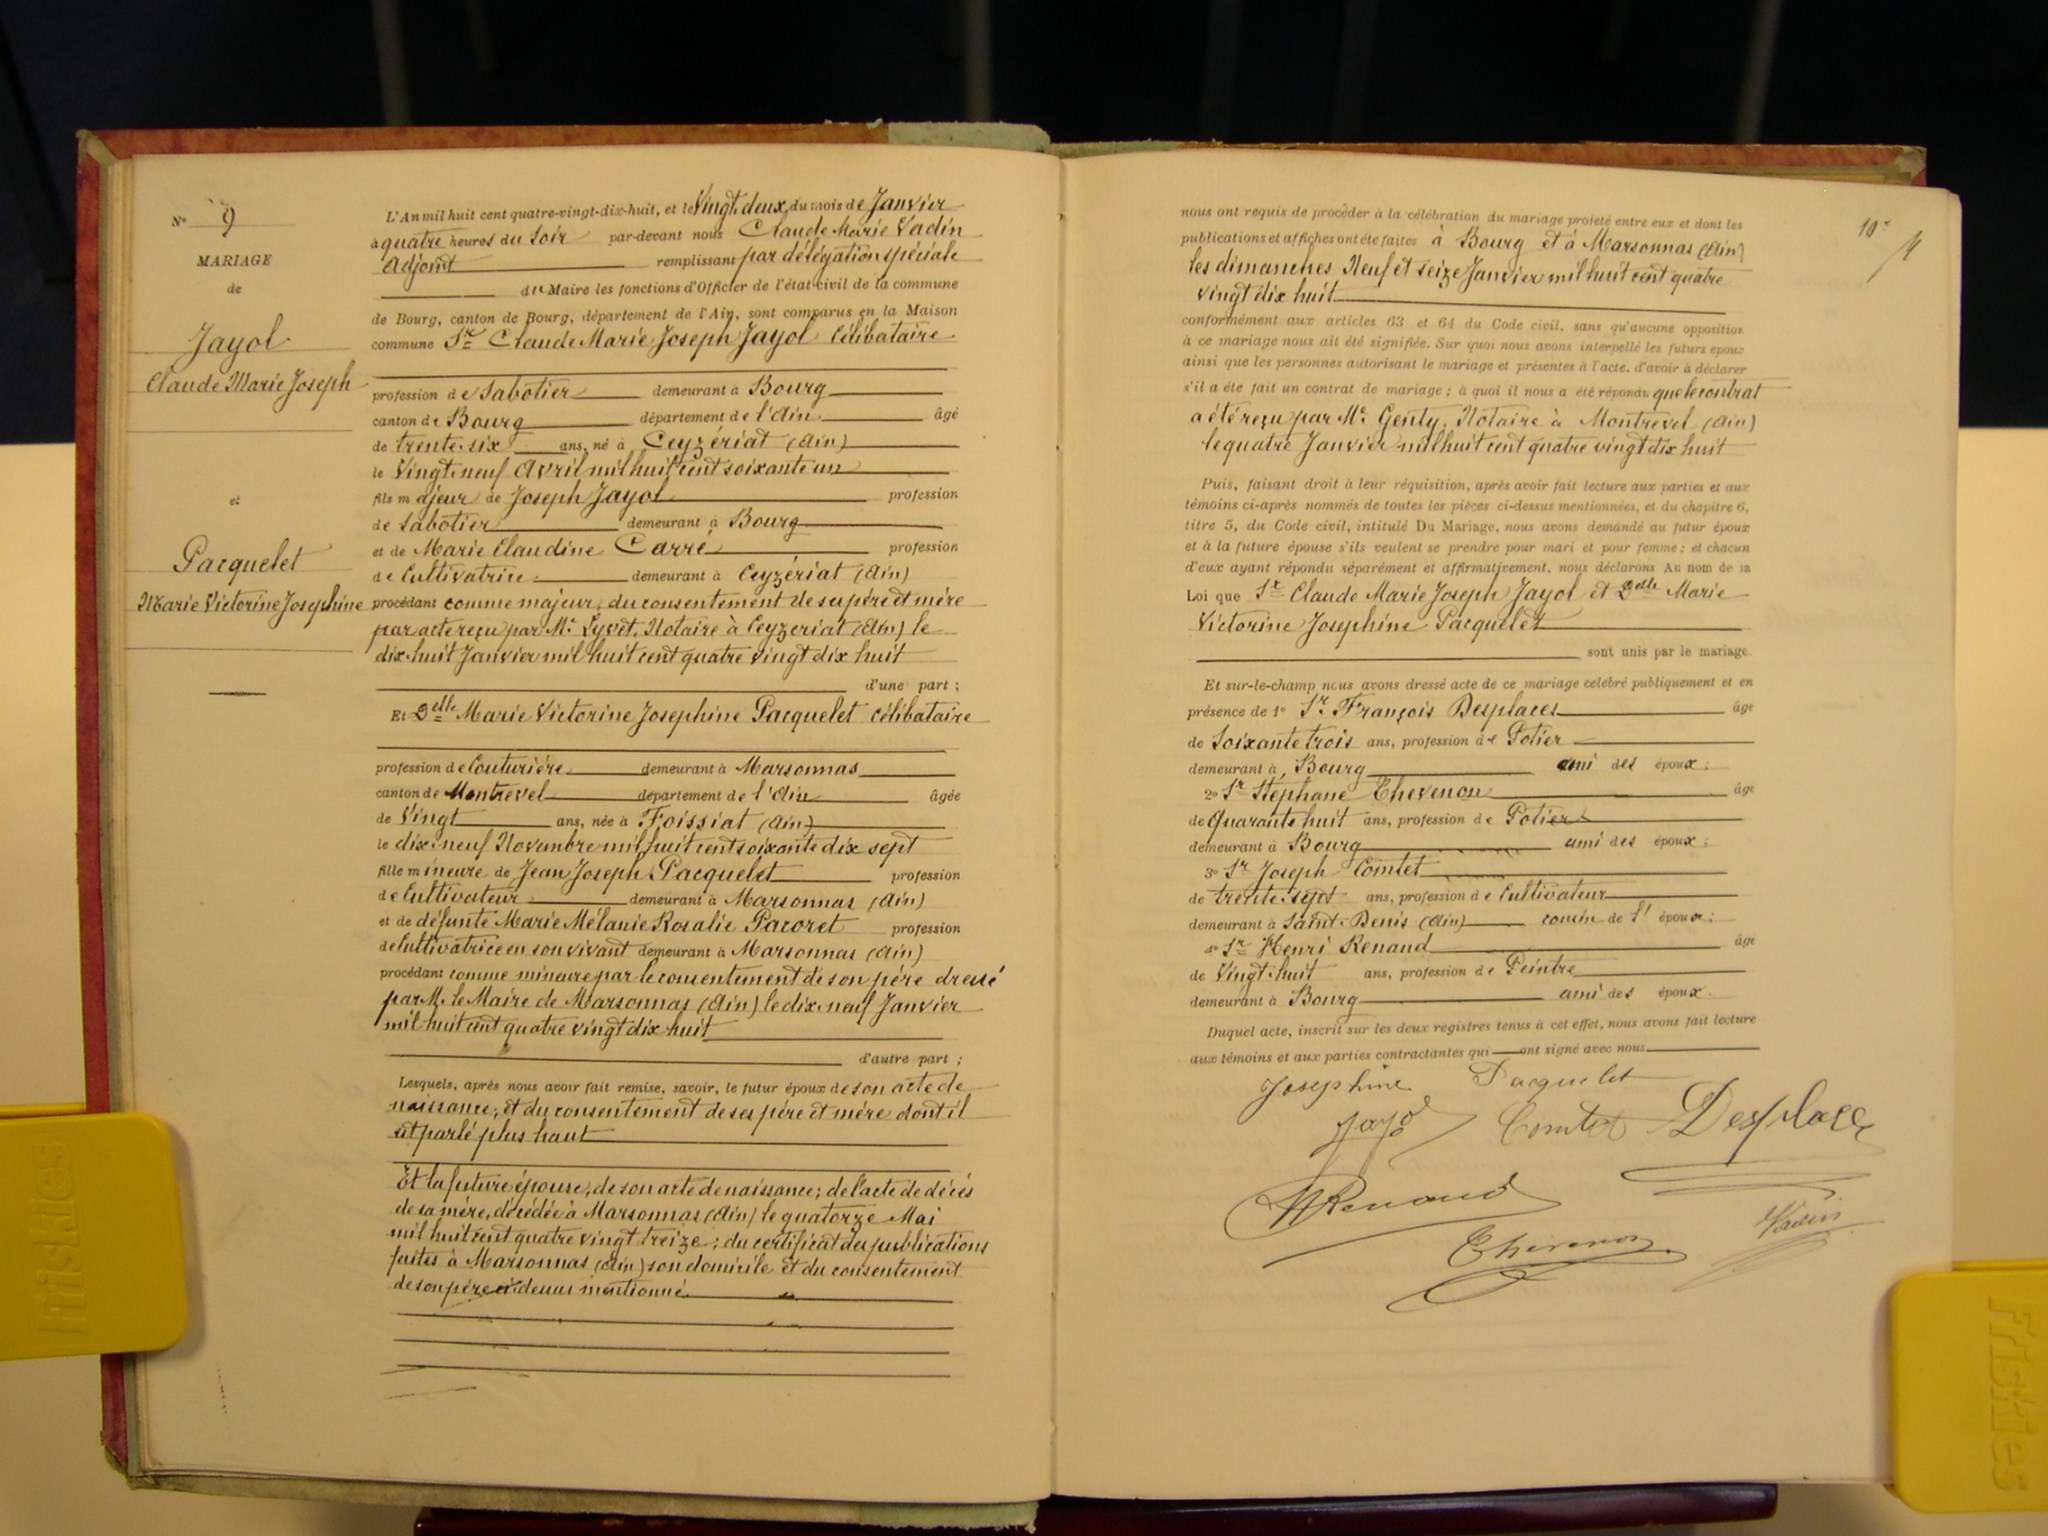 N° 9
MARIAGE
de
Jayol
Claude Marie Joseph
et
Pacquelet
Marie Victorine Josephine
L'An mil huit cent quatre-vingt-dix-huit, et le Vingt deux du mois de Janvier
à quatre heures du Soir par-devant nous Claude Marie Vadin
Adjoint remplissant par délégation spéciale
du Maire les fonctions d'Officier de l'état civil de la commune
de Bourg, canton de Bourg, département de l'Ain, sont comparus en la Maison
commune Sr Claude Marie Joseph Jayol Célibataire
profession de Sabotier demeurant à Bourg
canton de Bourg département de l'Ain âgé
de trente six ans, né à Ceyzériat (Ain)
le Vingt neuf Avril mil huit cent soixante un
fils majeur de Joseph Jayol profession
de Sabotier demeurant à Bourg
et de Marie Claudine Carré profession
de Cultivatrice demeurant à Ceyzériat (Ain)
procédant comme majeur, du consentement de ses père et mère
par acte reçu par Me Notaire à Ceyzeriat (Ain) le
dix huit Janvier mil huit cent quatre vingt dix huit
d'une part ;
Et Delle Marie Victorine Josephine Pacquelet Célibataire
profession de Couturière demeurant à Marsonnas
canton de Montrevel département de l'Ain âgée
de Vingt ans, née à Foissiat (Ain)
le dix neuf Novembre mil huit cent soixante dix sept
fille mineure de Jean Joseph Pacquelet profession
de Cultivateur demeurant à Marsonnas (Ain)
et de défunte Marie Mélanie Rosalie Pacoret profession
de Cultivatrice en son vivant demeurant à Marsonnas (Ain)
procédant comme mineure par le consentement de son père dressé
par M. le Maire de Marsonnas (Ain) le dix neuf Janvier
mil huit cent quatre vingt dix huit
d'autre part ;
Lesquels, après nous avoir fait remise, savoir, le futur époux de son acte de
naissance, et du consentement de ses père et mère dont il
est parlé plus haut
Et la future épouse, de son acte de naissance; de l'acte de décès
de sa mère, décédée à Marsonnas (Ain) le quatorze Mai
mil huit cent quatre vingt treize; du certificat des publications
faites à Marsonnas (Ain) son domicile et du consentement
de son père ci dessus mentionné.
10e
nous ont requis de procéder à la célébration du mariage projeté entre eux et dont les
publications et affiches ont été faites à Bourg et à Marsonnas (Ain)
les dimanches Neuf et seize Janvier mil huit cent quatre
vingt dix huit
conformément aux articles 63 et 64 du Code civil, sans qu'aucune opposition
à ce mariage nous ait été signifiée. Sur quoi nous avons interpellé les futurs époux
ainsi que les personnes autorisant le mariage et présentes à l'acte, d'avoir à déclarer
s'il a été fait un contrat de mariage ; à quoi il nous a été répondu que le contrat
a été reçu par Me Genty, Notaire à Montrevel (Ain)
le quatre Janvier mil huit cent quatre vingt dix huit
Puis, faisant droit à leur réquisition, après avoir fait lecture aux parties et aux
témoins ci-après nommés de toutes les pièces ci-dessus mentionnées, et du chapitre 6,
titre 5, du Code civil, intitulé Du Mariage, nous avons demandé au futur époux
et à la future épouse s'ils veulent se prendre pour mari et pour femme ; et chacun
d'eux ayant répondu séparément et affirmativement, nous déclarons Au nom de la
Loi que Sr Claude Marie Joseph Jayol et Delle Marie
Victorine Josephine Pacquelet
sont unis par le mariage.
Et sur-le-champ nous avons dressé acte de ce mariage célébré publiquement et en
présence de 1° Sr François Desplaces âgé
de Soixante trois ans, profession de Potier
demeurant à Bourg ami des époux ;
2° Sr Stéphane Thevenon âgé
de Quarante huit ans, profession de Potier
demeurant à Bourg ami des époux ;
3° Sr Joseph Comtet
de trente sept ans, profession de Cultivateur
demeurant à Saint Denis (Ain) cousin de l' époux ;
4° Sr Henri Renaud âgé
de Vingt huit ans, profession de Peintre
demeurant à Bourg ami des époux.
Duquel acte, inscrit sur les deux registres tenus à cet effet, nous avons fait lecture
aux témoins et aux parties contractantes qui ont signé avec nous
Josephine Pacquelet
Jayol Comtet Desplaces
H Renaud
Vadin
Thevenon
Friskies
Friskies